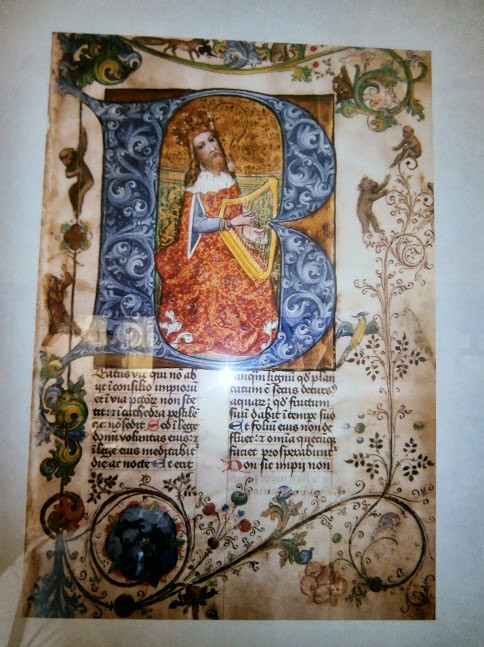 B
eatus vir qui nō ab
ijt ī consilio impioru
et ī via pctor̄ non ste
tit: ī cathedra pestilē
cie nō sedit Sed ī lege
domī voluntas eius: ⁊
ī lege eius meditabit
die ac nocte Et erit
tanqm̄ lignū qd̄ plan
tatum ē secus decurs⁹
aquar̄: qd̄ fructum
suū dabit ī tempe suo
Et foliū eius non de
fluet: ⁊ omīa quecūq
faciet prosperabunt
Non sic impij non